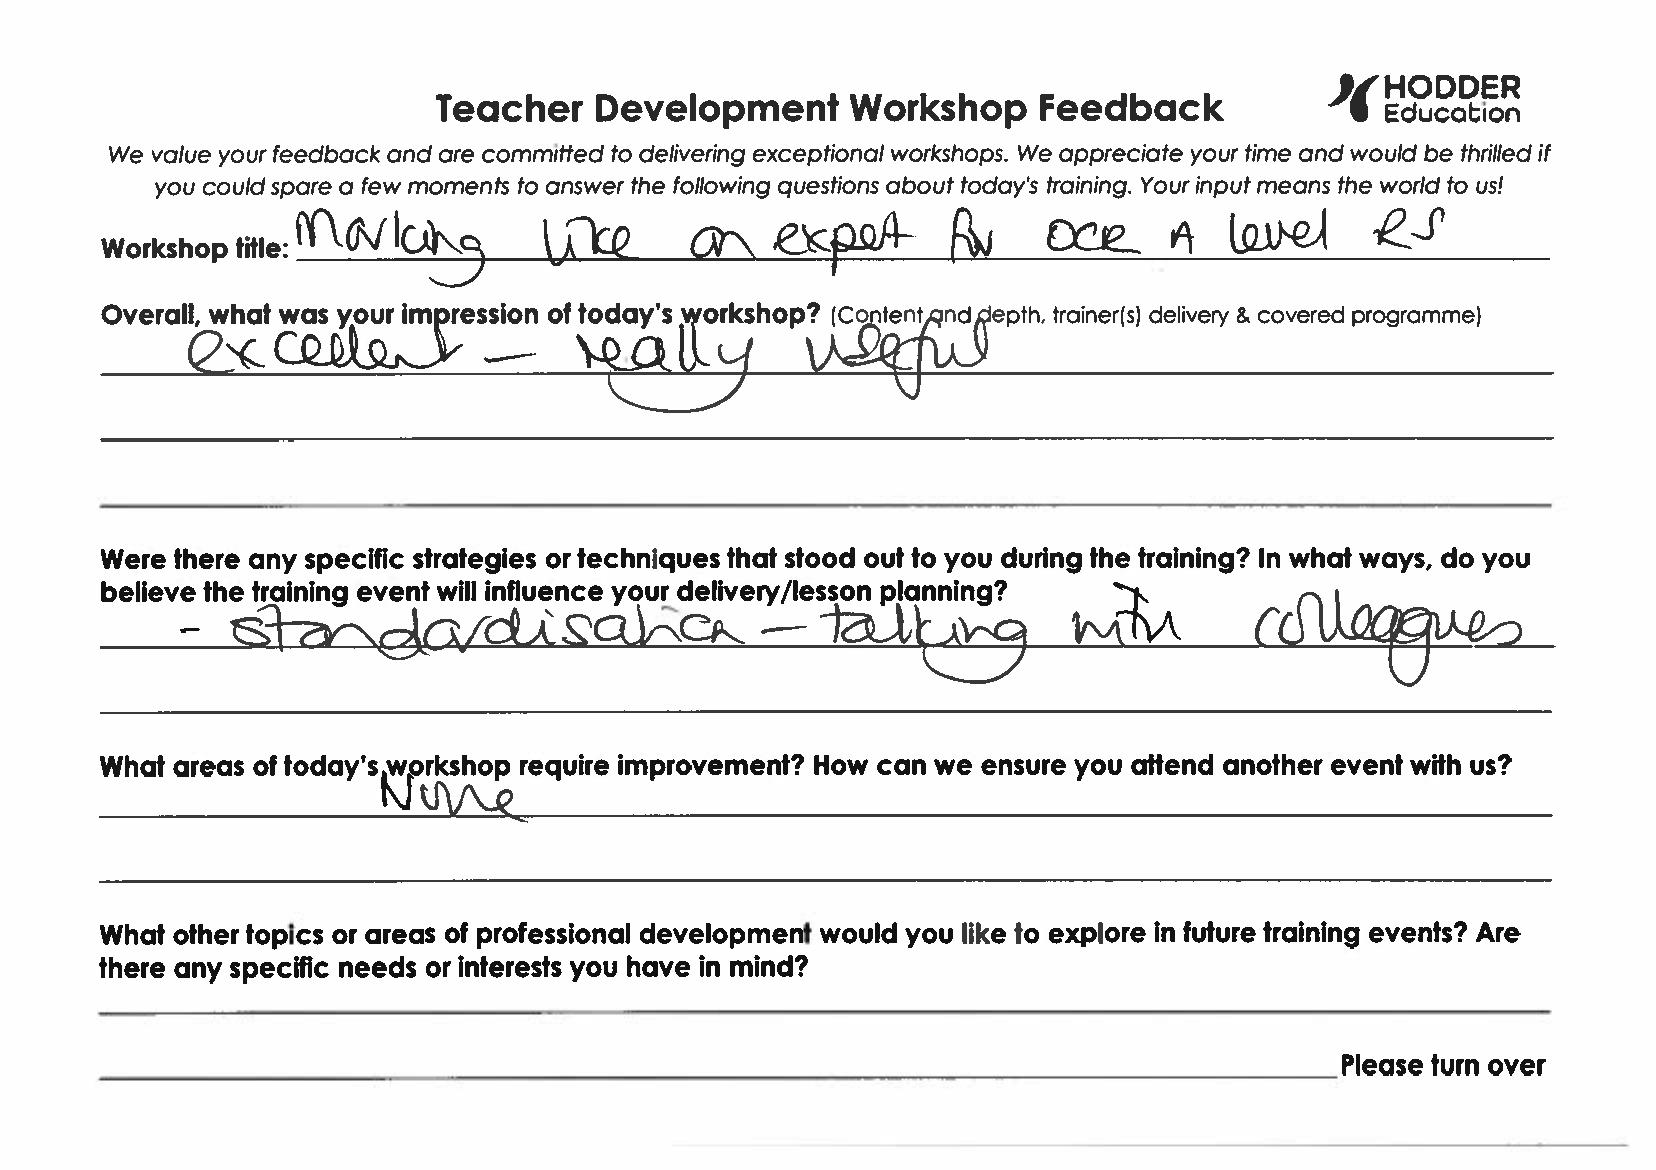 HODDER
Education
Teacher Development Workshop Feedback
We value your feedback and are committed to delivering exceptional workshops. We appreciate your time and would be thrilled if
you could spare a few moments to answer the following questions about today's training. Your input means the world to us!
Workshop title: Marking like an expert for OCR A level RS
Overall, what was your impression of today's workshop? (Content and depth, trainer(s) delivery & covered programme)
excellent – really useful
Were there any specific strategies or techniques that stood out to you during the training? In what ways, do you
believe the training event will influence your delivery/lesson planning?
- standardisation – talking with colleagues
What areas of today's workshop require improvement? How can we ensure you attend another event with us?
None
What other topics or areas of professional development would you like to explore in future training events? Are
there any specific needs or interests you have in mind?
Please turn over